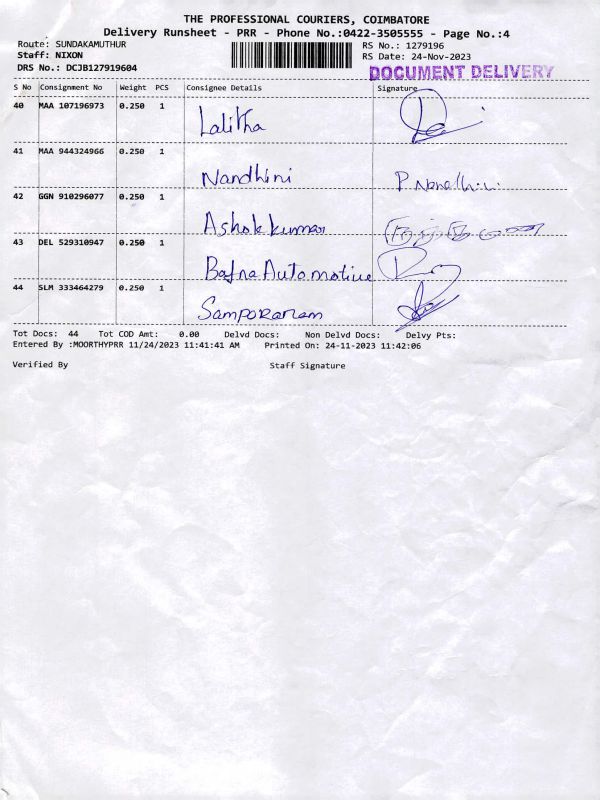 THE PROFESSIONAL COURIERS, COIMBATORE
Delivery Runsheet - PRR - Phone No.:0422-3505555 - Page No.:4
Route: SUNDAKAMUTHUR RS No.: 1279196
Staff: NIXON RS Date: 24-Nov-2023
DRS No.: DCJB127919604 DOCUMENT DELIVERY
S No Consignment No Weight PCS Consignee Details Signature
40 MAA 107196973 0.250 1
Lalitha
41 MAA 944324966 0.250 1
Nandhini P Nandhini
42 GGN 910296077 0.250 1
Ashokkumar
43 DEL 529310947 0.250 1
Bafna Automotive
44 SLM 333464279 0.250 1
Tot Docs: 44 Tot COD Amt: 0.00 Delvd Docs: Non Delvd Docs: Delvy Pts:
Entered By :MOORTHYPRR 11/24/2023 11:41:41 AM Printed On: 24-11-2023 11:42:06
Verified By Staff Signature